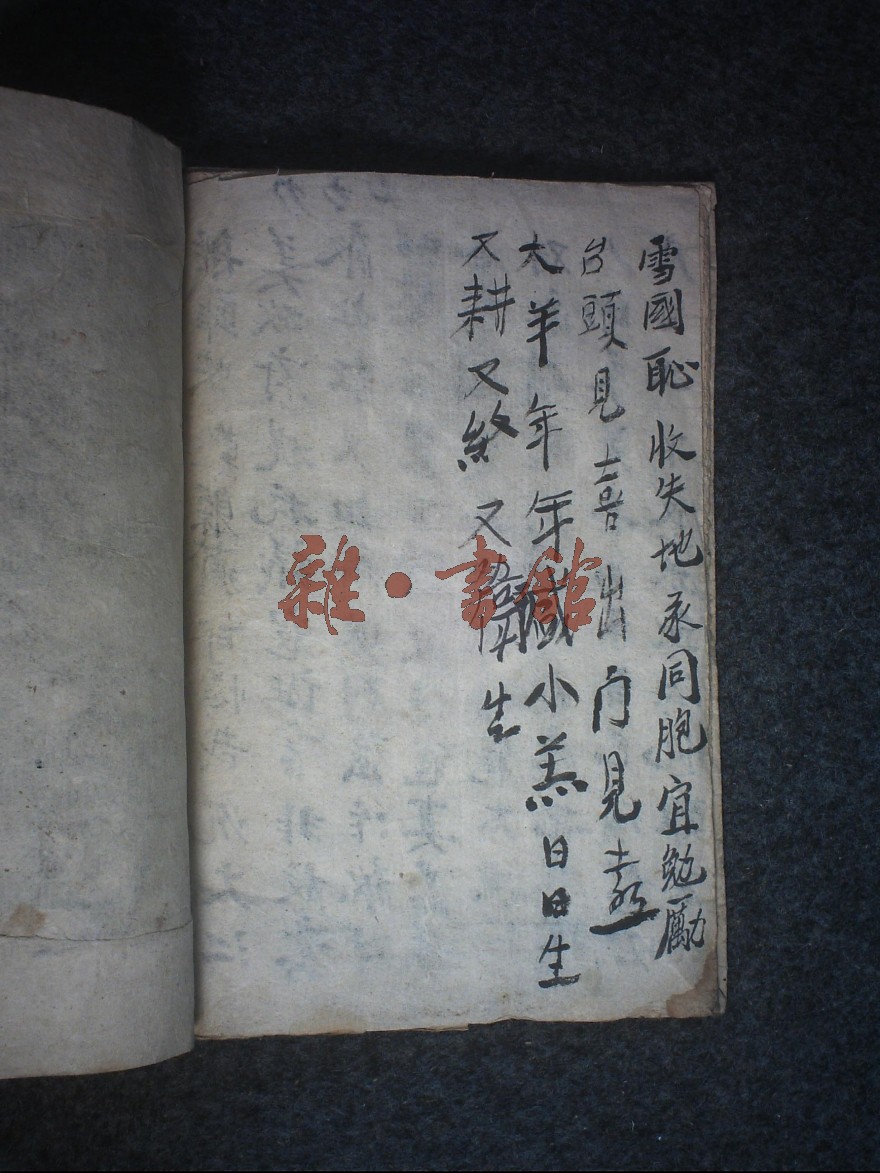 雪國恥收失地永同胞宜勉勵
台頭見喜出门見喜
大羊年年盛小羔日日生
又耕又
又
生
雜·書館